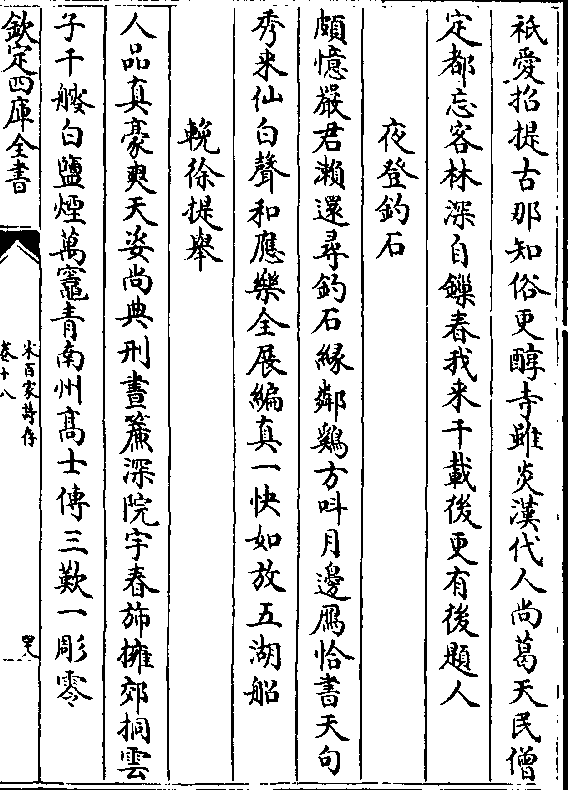 祇愛招提古那知俗更醇寺雖炎漢代人尚葛天民僧
定都忘客林深自鏁春我来千載後更有後題人
夜登釣石
頗憶嚴君瀨還尋釣石緣鄰鷄方呌月邊鴈恰書天句
秀来仙白聲和應樂全展編真一快如放五湖船
輓徐提舉
人品真豪爽天姿尚典刑晝簾深院宇春斾擁郊坰雲
子千艘白鹽煙萬竈青南州髙士傳三歎一彫零
欽定四庫全書
宋百家詩存
卷十八